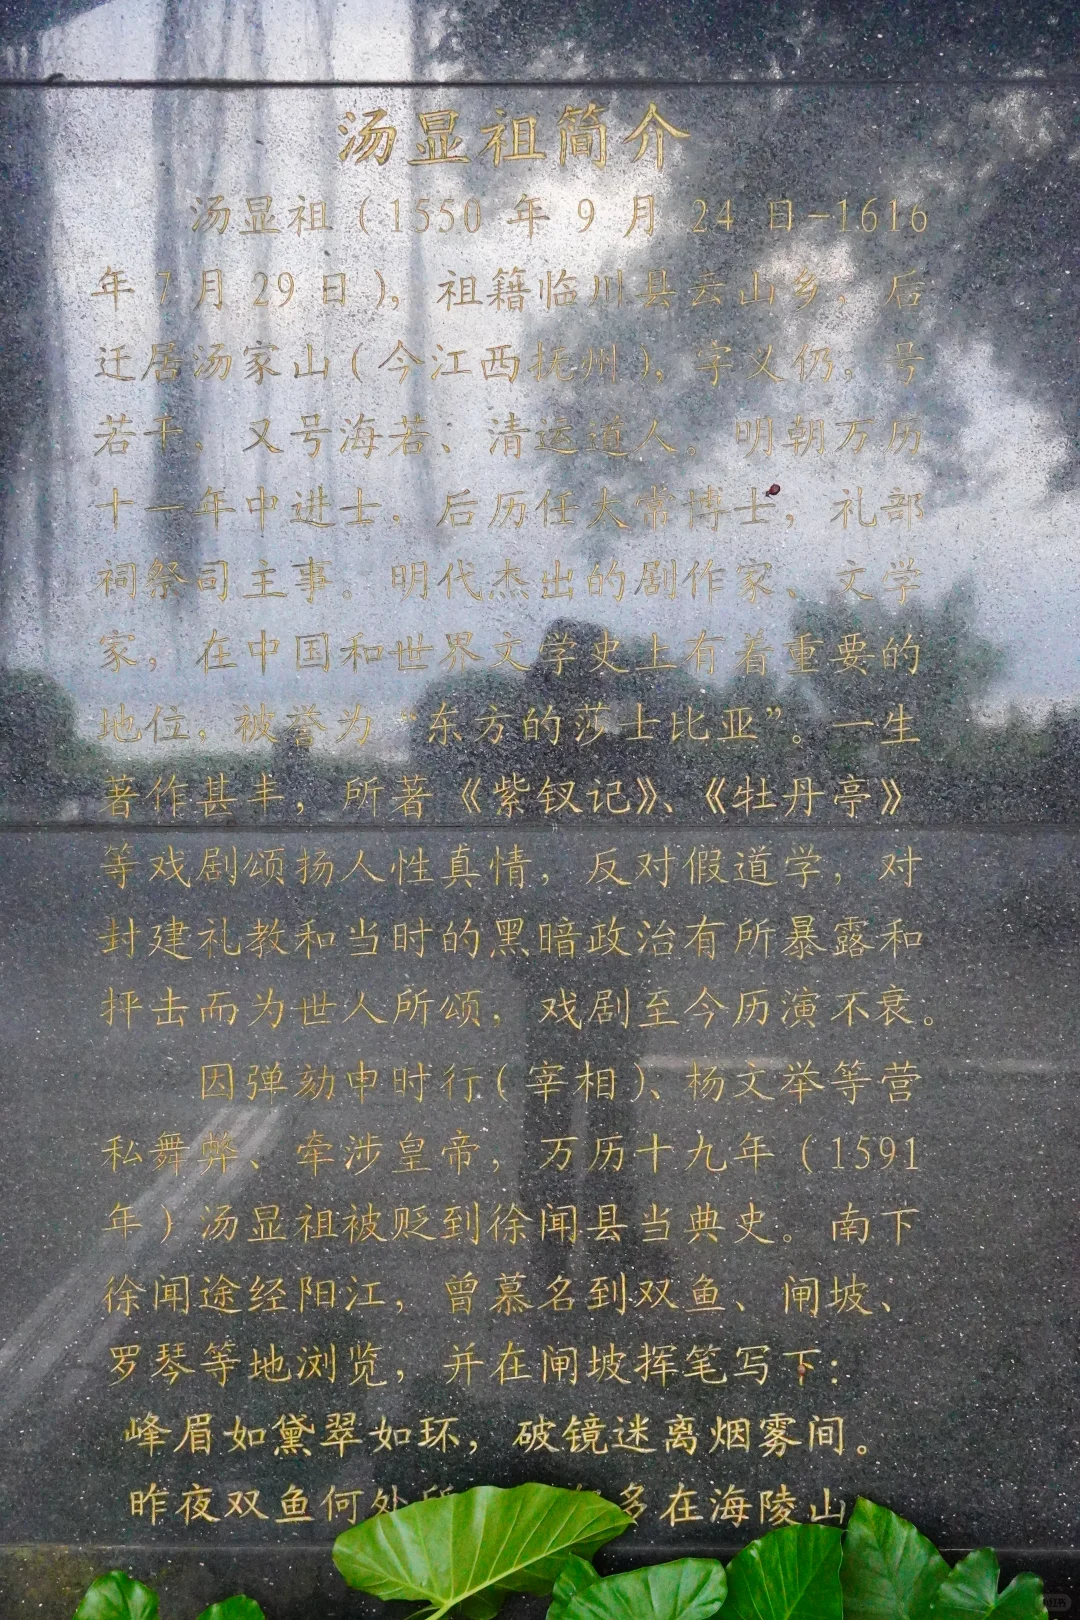 汤显祖简介
汤显祖（1550 年 9 月 24 日-1616
年 7 月 29 日），祖籍临川县云山乡，后
迁居汤家山（今江西抚州），字义仍，号
若士，又号海若、清远道人。明朝万历
十一年中进士，后历任大常博士，礼部
祠祭司主事。明代杰出的剧作家、文学
家，在中国和世界文学史上有着重要的
地位，被誉为“东方的莎士比亚”。一生
著作甚丰，所著《紫钗记》、《牡丹亭》
等戏剧颂扬人性真情，反对假道学，对
封建礼教和当时的黑暗政治有所暴露和
抨击而为世人所颂，戏剧至今历演不衰。
因弹劾申时行（宰相）、杨文举等营
私舞弊、牵涉皇帝，万历十九年（1591
年）汤显祖被贬到徐闻县当典史。南下
徐闻途经阳江，曾慕名到双鱼、闸坡、
罗琴等地浏览，并在闸坡挥笔写下：
峰眉如黛翠如环，破镜迷离烟雾间。
昨夜双鱼何处 多在海陵山